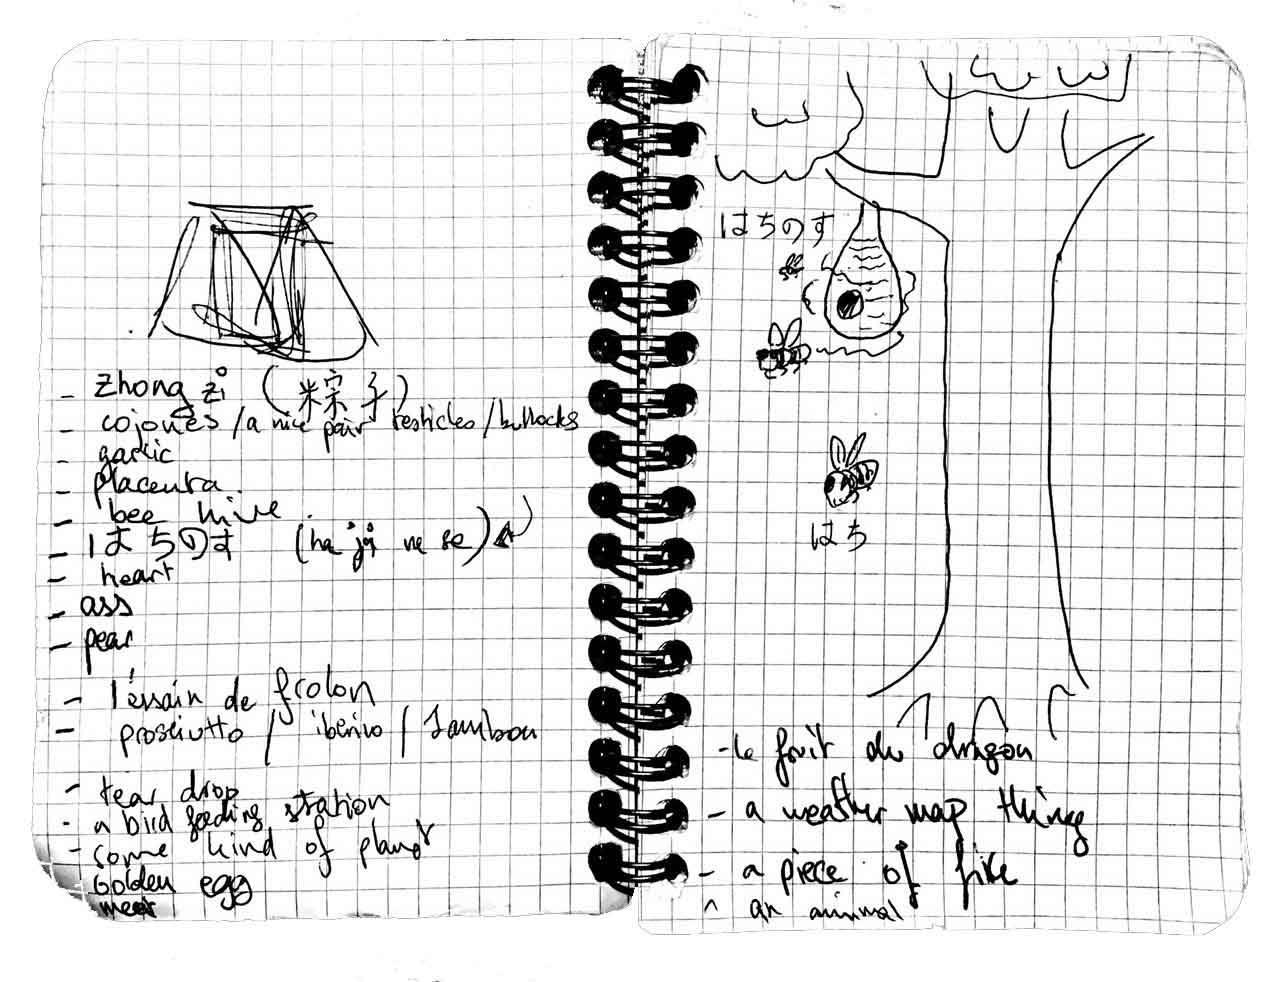 - Zhong zi (粽子)
- cojones / a nice pair testicles / bullocks
- garlic
- placenta.
- bee hive.
- はちのす (ha ji ne se)
- heart
- ass
- pear
- l'éssain de frolon
- prosciutto / iberico / Jambon
- tear drop
- a bird feeding station
- some kind of planet
Golden egg
はちのす
はち
- le fruit du dragon
- a weather map thing
- a piece of fire
- an animal